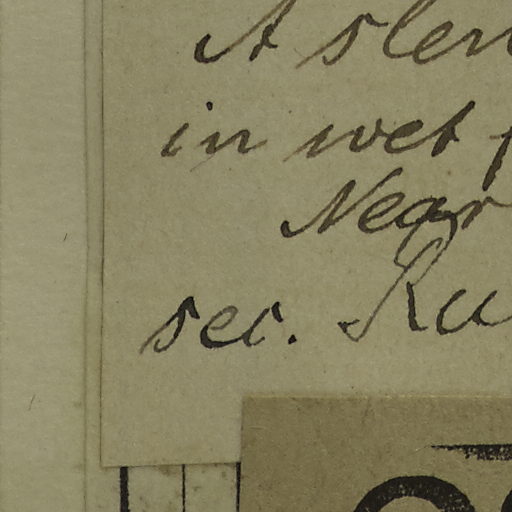 A slen
in wet
Near
sec. Ru